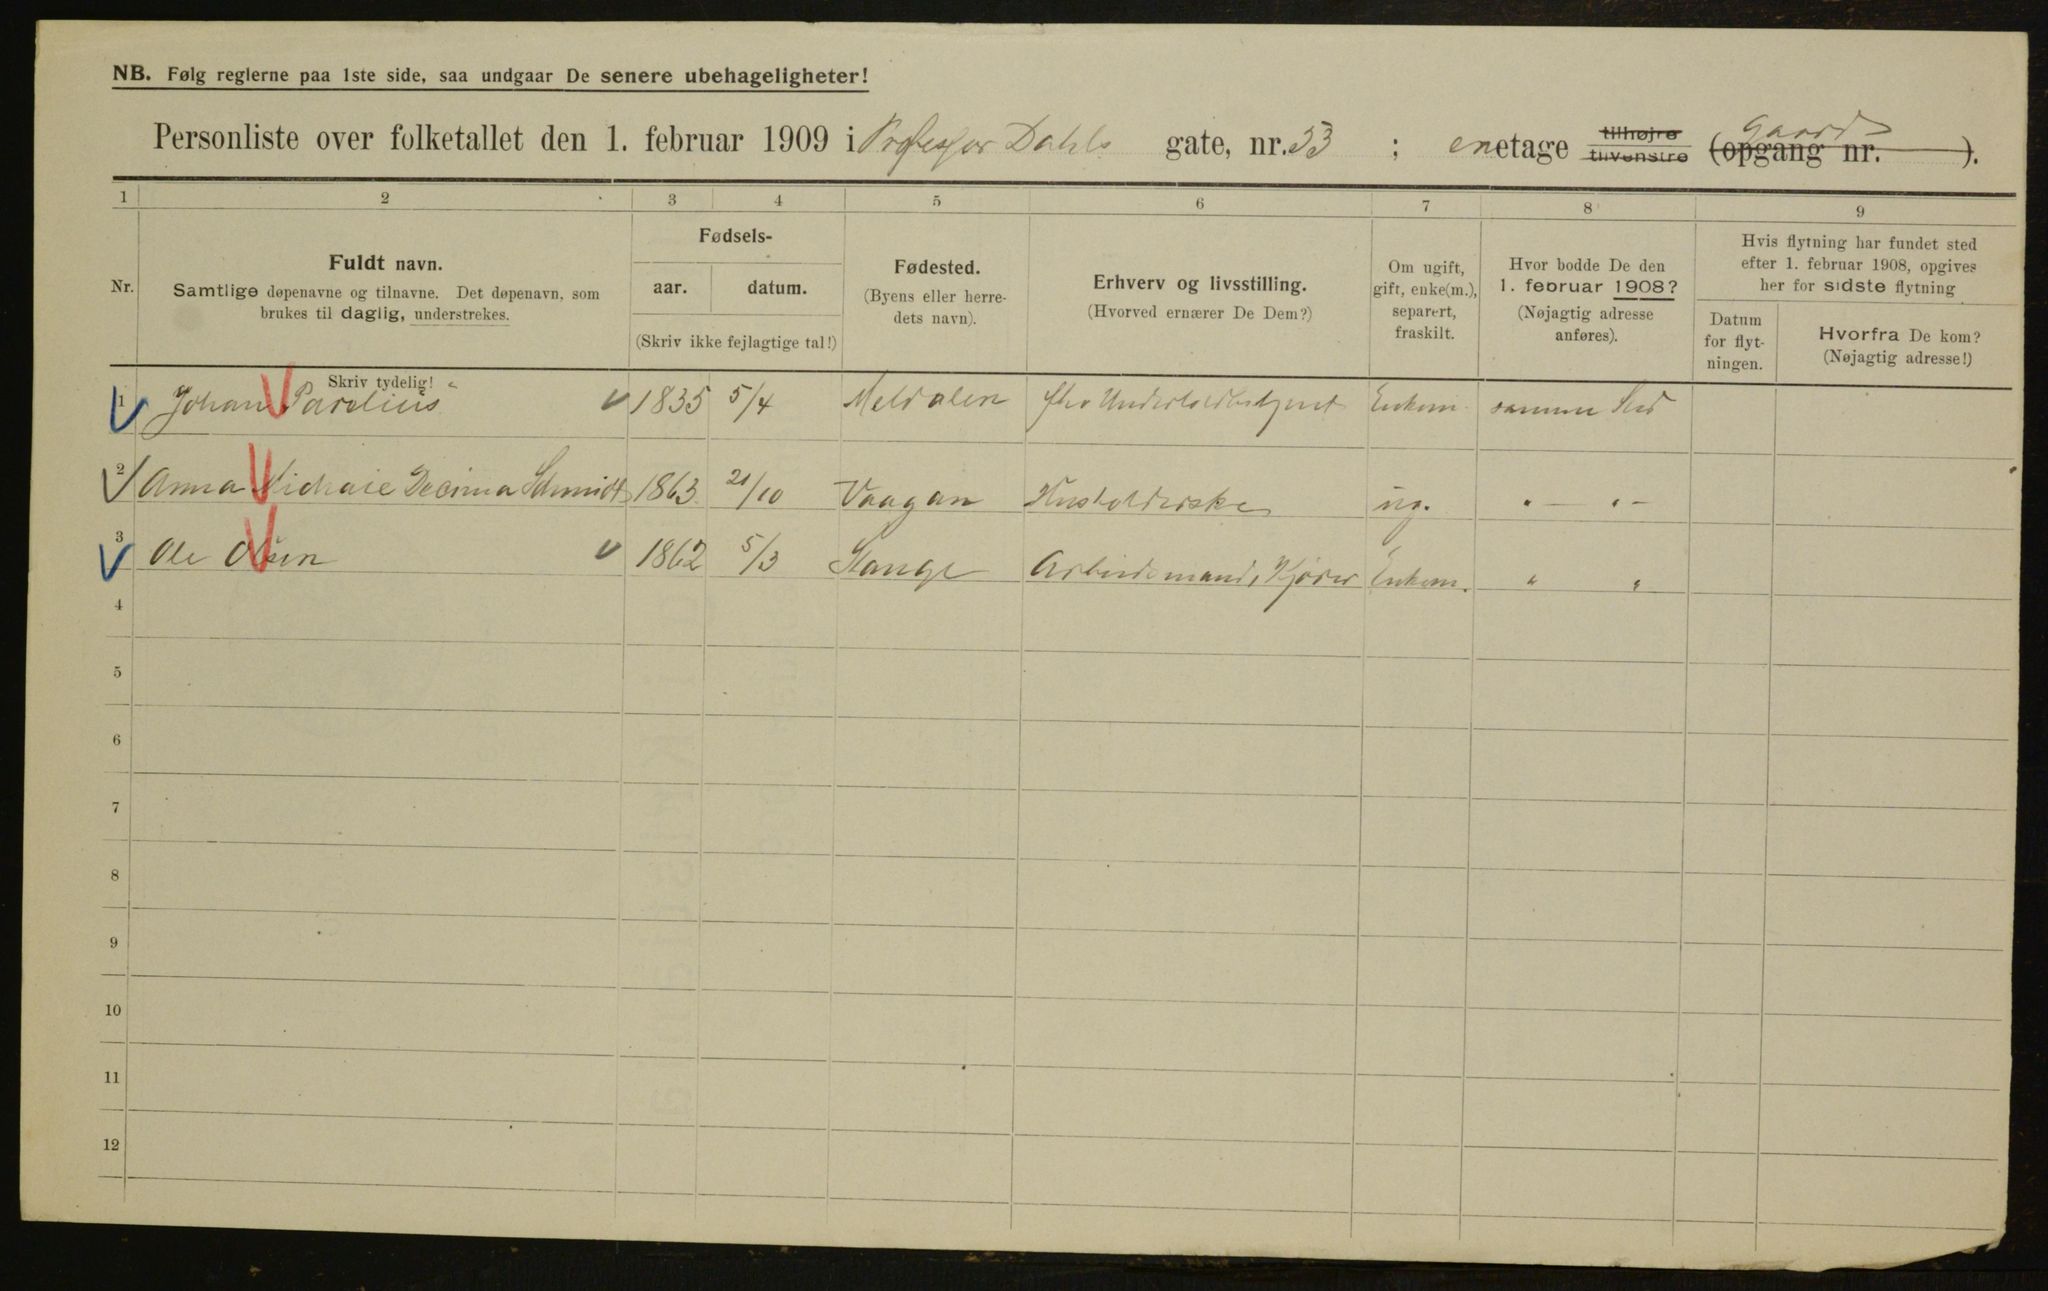 NB. Følg reglerne paa 1ste side, saa undgaar De senere ubehageligheter!
Personliste over folketallet den 1. februar 1909 i Professor Dahls gate, nr. 53 ; en etage tilhøjre tilvenstre (opgang nr. ). Gaard
1 2 3 4 5 6 7 8 9
Nr.
Fuldt navn.
Samtlige døpenavne og tilnavne. Det døpenavn, som
brukes til daglig, understrekes.
Skriv tydelig!
Fødsels-
aar. datum.
(Skriv ikke fejlagtige tal!)
Fødested.
(Byens eller herre-
dets navn).
Erhverv og livsstilling.
(Hvorved ernærer De Dem?)
Om ugift,
gift, enke(m.),
separert,
fraskilt.
Hvor bodde De den
1. februar 1908?
(Nøjagtig adresse
anføres).
Hvis flytning har fundet sted
efter 1. februar 1908, opgives
her for sidste flytning
Datum
for flyt-
ningen.
Hvorfra De kom?
(Nøjagtig adresse!)
1 Johan Parelius 1835 5/4 Meldalen Enkem. samme Sted
2 Anna Decima Schmidt 1863 21/10 Vaagan Husholderske ug. " — " —
3 Ole Olsen 1862 5/3 Stange Arbeidsmand, Kjører Enkem. " "
4
5
6
7
8
9
10
11
12